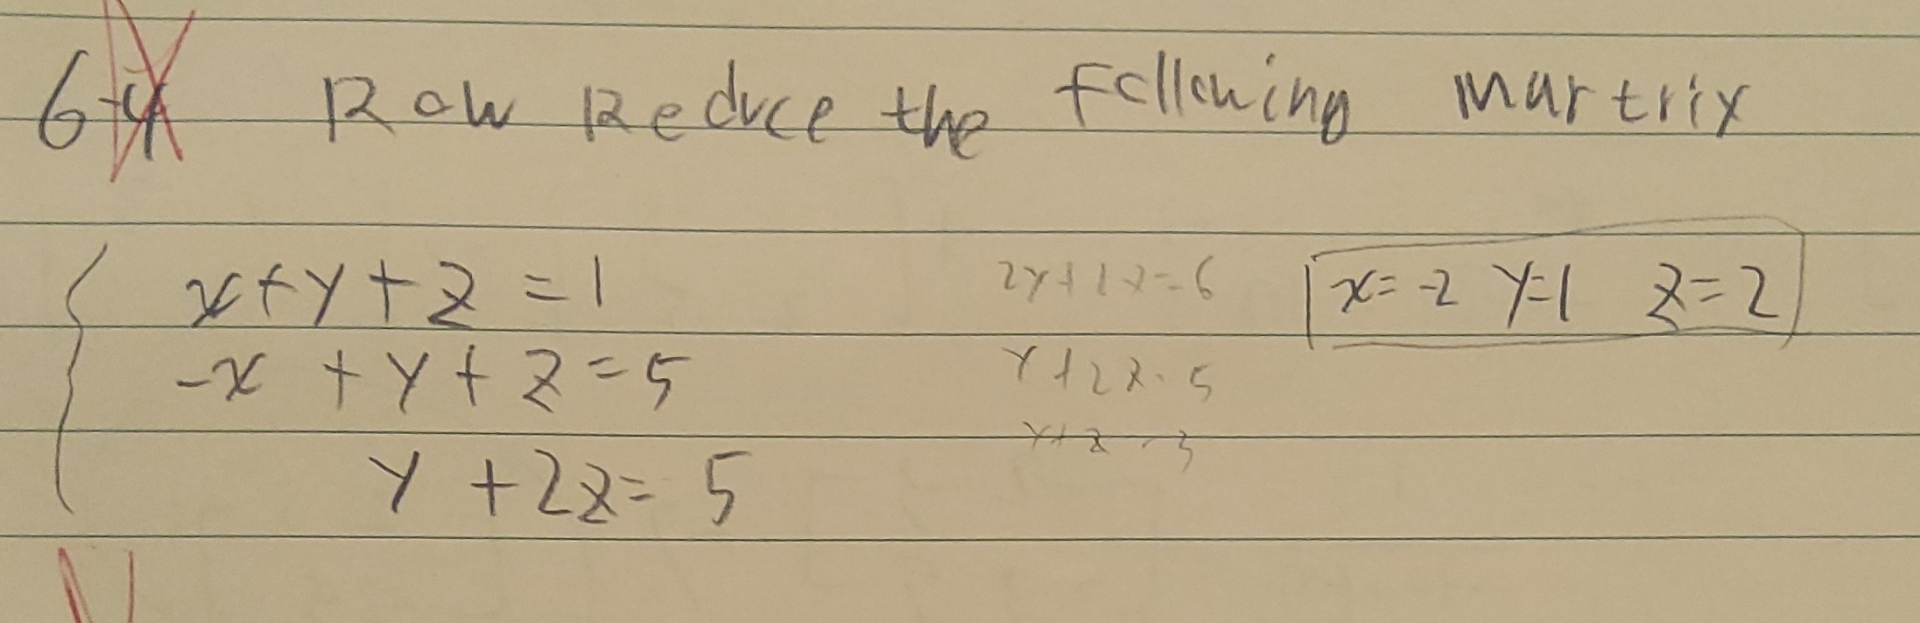 6-4 Row Reduce the following martrix
x+y+z=1
2y+1z=6
x=-2 y=1 z=2
-x+y+z=5
y+2z=5
y+z=3
y+2z=5